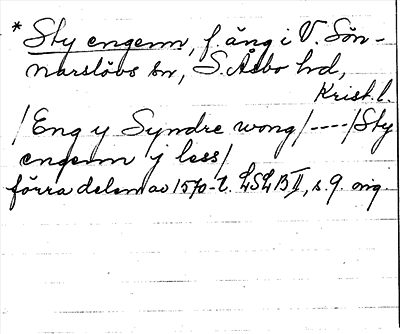 * Sty engenn, f. äng i V. Sön-
narslövs sn, S. Åsbo hd,
Krist. l.
/ Eng y Syndre wong / ---- / Sty
engenn j less /
förra delen av 1570-t. LSLB II, s. 9. orig.